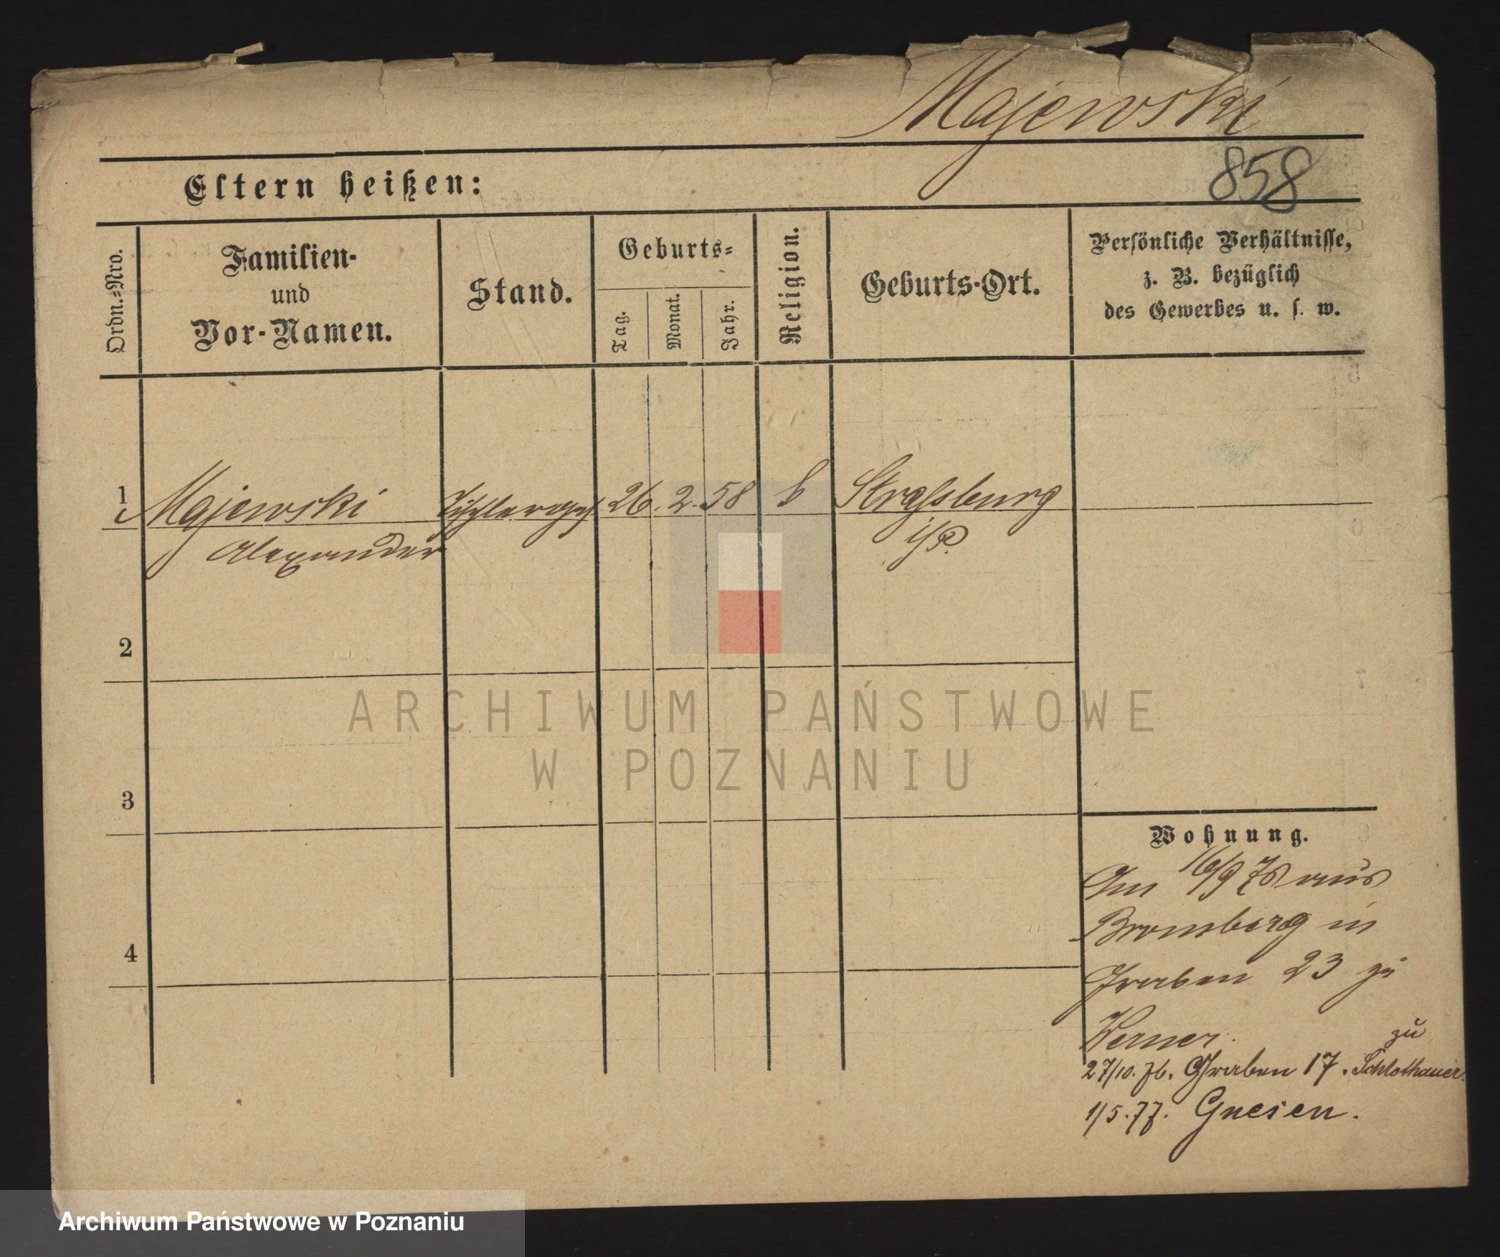 Majewski
858
Eltern heißen:
Ordn.-Nro.
Familien-
und
Vor-Namen.
Stand.
Geburts-
Tag.
Monat.
Jahr.
Religion.
Geburts-Ort.
Persönliche Verhältnisse,
z. B. bezüglich
des Gewerbes u. s. w.
1 Majewski Tischlerges 26. 2. 58 k Strassburg
Alexander i/P.
2
3
4
Wohnung.
Am 16/9 76 aus
Bromberg in
Graben 23 zu
Werner.
zu
27/10. 76. Graben 17. Schlothauer.
1/5. 77. Gnesen.
ARCHIWUM PAŃSTWOWE
W POZNANIU
Archiwum Państwowe w Poznaniu